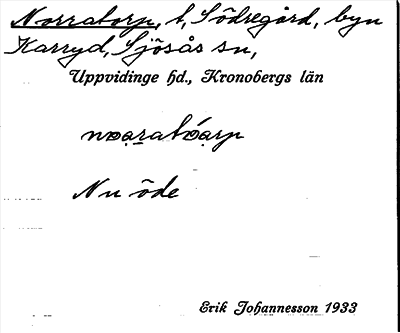 Norratorp, t, Södregård, byn
Karryd, Sjösås sn,
Uppvidinge hd., Kronobergs län
Nu öde
Erik Johannesson 1933